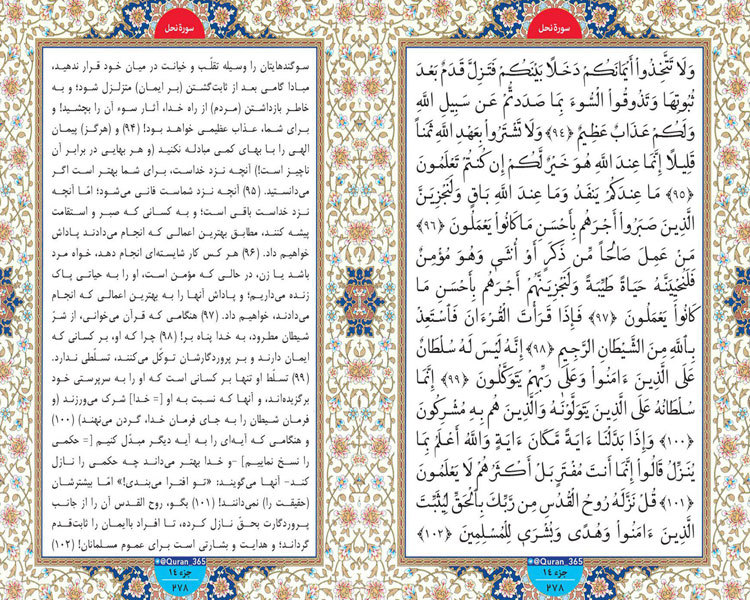 سورة نحل
وَلَا تَتَّخِذُوٓاْ أَيْمَانَكُمْ دَخَلًۢا بَيْنَكُمْ فَتَزِلَّ قَدَمٌۢ بَعْدَ
ثُبُوتِهَا وَتَذُوقُواْ ٱلسُّوٓءَ بِمَا صَدَدتُّمْ عَن سَبِيلِ ٱللَّهِ
وَلَكُمْ عَذَابٌ عَظِيمٌ ﴿٩٤﴾ وَلَا تَشْتَرُواْ بِعَهْدِ ٱللَّهِ ثَمَنًا
قَلِيلًا إِنَّمَا عِندَ ٱللَّهِ هُوَ خَيْرٌ لَّكُمْ إِن كُنتُمْ تَعْلَمُونَ
﴿٩٥﴾ مَا عِندَكُمْ يَنفَدُ وَمَا عِندَ ٱللَّهِ بَاقٍ وَلَنَجْزِيَنَّ
ٱلَّذِينَ صَبَرُوٓاْ أَجْرَهُم بِأَحْسَنِ مَا كَانُواْ يَعْمَلُونَ ﴿٩٦﴾
مَنْ عَمِلَ صَالِحًا مِّن ذَكَرٍ أَوْ أُنثَىٰ وَهُوَ مُؤْمِنٌ
فَلَنُحْيِيَنَّهُ حَيَاةً طَيِّبَةً وَلَنَجْزِيَنَّهُمْ أَجْرَهُم بِأَحْسَنِ مَا
كَانُواْ يَعْمَلُونَ ﴿٩٧﴾ فَإِذَا قَرَأْتَ ٱلْقُرْءَانَ فَٱسْتَعِذْ
بِٱللَّهِ مِنَ ٱلشَّيْطَانِ ٱلرَّجِيمِ ﴿٩٨﴾ إِنَّهُ لَيْسَ لَهُ سُلْطَانٌ
عَلَى ٱلَّذِينَ ءَامَنُواْ وَعَلَىٰ رَبِّهِمْ يَتَوَكَّلُونَ ﴿٩٩﴾ إِنَّمَا
سُلْطَانُهُ عَلَى ٱلَّذِينَ يَتَوَلَّوْنَهُ وَٱلَّذِينَ هُم بِهِ مُشْرِكُونَ
﴿١٠٠﴾ وَإِذَا بَدَّلْنَآ ءَايَةً مَّكَانَ ءَايَةٍ وَٱللَّهُ أَعْلَمُ بِمَا
يُنَزِّلُ قَالُوٓاْ إِنَّمَآ أَنتَ مُفْتَرٍ بَلْ أَكْثَرُهُمْ لَا يَعْلَمُونَ
﴿١٠١﴾ قُلْ نَزَّلَهُ رُوحُ ٱلْقُدُسِ مِن رَّبِّكَ بِٱلْحَقِّ لِيُثَبِّتَ
ٱلَّذِينَ ءَامَنُواْ وَهُدًى وَبُشْرَىٰ لِلْمُسْلِمِينَ ﴿١٠٢﴾
@Quran_365
جزء ١٤
٢٧٨
سورة نحل
سوگندهایتان را وسیله تقلّب و خیانت در میان خود قرار ندهید،
مبادا گامی بعد از ثابت‌گشتن (بر ایمان) متزلزل شود؛ و به
خاطر بازداشتن (مردم) از راه خدا، آثار سوء آن را بچشید! و
برای شما، عذاب عظیمی خواهد بود! (٩٤) و (هرگز) پیمان
الهی را با بهای کمی مبادله نکنید (و هر بهایی در برابر آن
ناچیز است!) آنچه نزد خداست، برای شما بهتر است اگر
می‌دانستید. (٩٥) آنچه نزد شماست فانی می‌شود؛ امّا آنچه
نزد خداست باقی است؛ و به کسانی که صبر و استقامت
پیشه کنند، مطابق بهترین اعمالی که انجام می‌دادند پاداش
خواهیم داد. (٩٦) هر کس کار شایسته‌ای انجام دهد، خواه مرد
باشد یا زن، در حالی که مؤمن است، او را به حیاتی پاک
زنده می‌داریم؛ و پاداش آنها را به بهترین اعمالی که انجام
می‌دادند، خواهیم داد. (٩٧) هنگامی که قرآن می‌خوانی، از شرّ
شیطان مطرود، به خدا پناه بر! (٩٨) چرا که او، بر کسانی که
ایمان دارند و بر پروردگارشان توکّل می‌کنند، تسلّطی ندارد.
(٩٩) تسلّط او تنها بر کسانی است که او را به سرپرستی خود
برگزیده‌اند، و آنها که نسبت به او [= خدا] شرک می‌ورزند (و
فرمان شیطان را به جای فرمان خدا، گردن می‌نهند) (١٠٠)
و هنگامی که آیه‌ای را به آیه دیگر مبدّل کنیم [= حکمی
را نسخ نماییم] -و خدا بهتر می‌داند چه حکمی را نازل
کند- آنها می‌گویند: «تو افترا می‌بندی!» امّا بیشترشان
(حقیقت را) نمی‌دانند! (١٠١) بگو، روح القدس آن را از جانب
پروردگارت بحقّ نازل کرده، تا افراد باایمان را ثابت‌قدم
گرداند؛ و هدایت و بشارتی است برای عموم مسلمانان! (١٠٢)
@Quran_365
جزء ١٤
٢٧٨